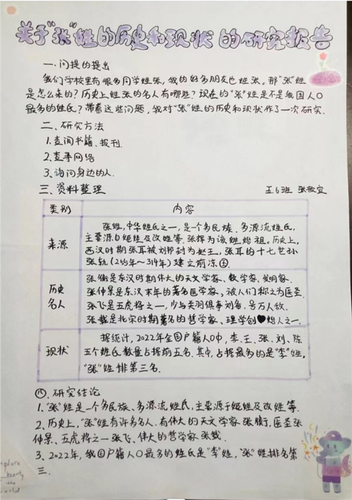 关于"张"姓的历史和现状的研究报告
一.问题的提出
我们学校里有很多同学姓张,我的好多朋友也姓张,那"张"姓
是怎么来的?历史上姓张的名人有哪些?现在的"张"姓是不是我国人口
最多的姓氏?带着这些问题,我对"张"姓的历史和现状作了一次研究.
二.研究方法
1.查阅书籍.报刊
2.查革网络
3.询问身边的人.
三.资料整理
五6班 张
类别
内容
来源
张姓,中华姓氏之一,是一个多民族、多源流姓氏,
主要源自姬姓及改姓等.张挥为该姓始祖.历史上,
西汉时期张耳被刘邦封为赵王.张耳的十七世孙
张轨(255年-314年)建立前凉国.
历史
名人
张衡是东汉时期伟大的天文学家、数学家、发明家.
张仲景是东汉末年的著名医学家,被人们称之为医圣
张飞是五虎将之一,少与关羽俱事刘备,号万人敌.
张载是北宋时期著名的哲学家、理学创始人之一.
现状
据统计,2022年全国户籍人口中,李、王、张、刘、陈
五个姓氏数量占据前五名.其中,占据最多的是"李"姓,
"张"姓排第三名.
四.研究结论
1."张"姓是一个多民族、多源流姓氏,主要源于姬姓及改姓等.
2.历史上,"张"姓有许多名人,有伟大的天文学家张衡;医圣张
仲景,五虎将之一张飞,伟大的哲学家,张载.
3.2022年,我国户籍人口最多的姓氏是"李"姓,"张"姓排名第
三.